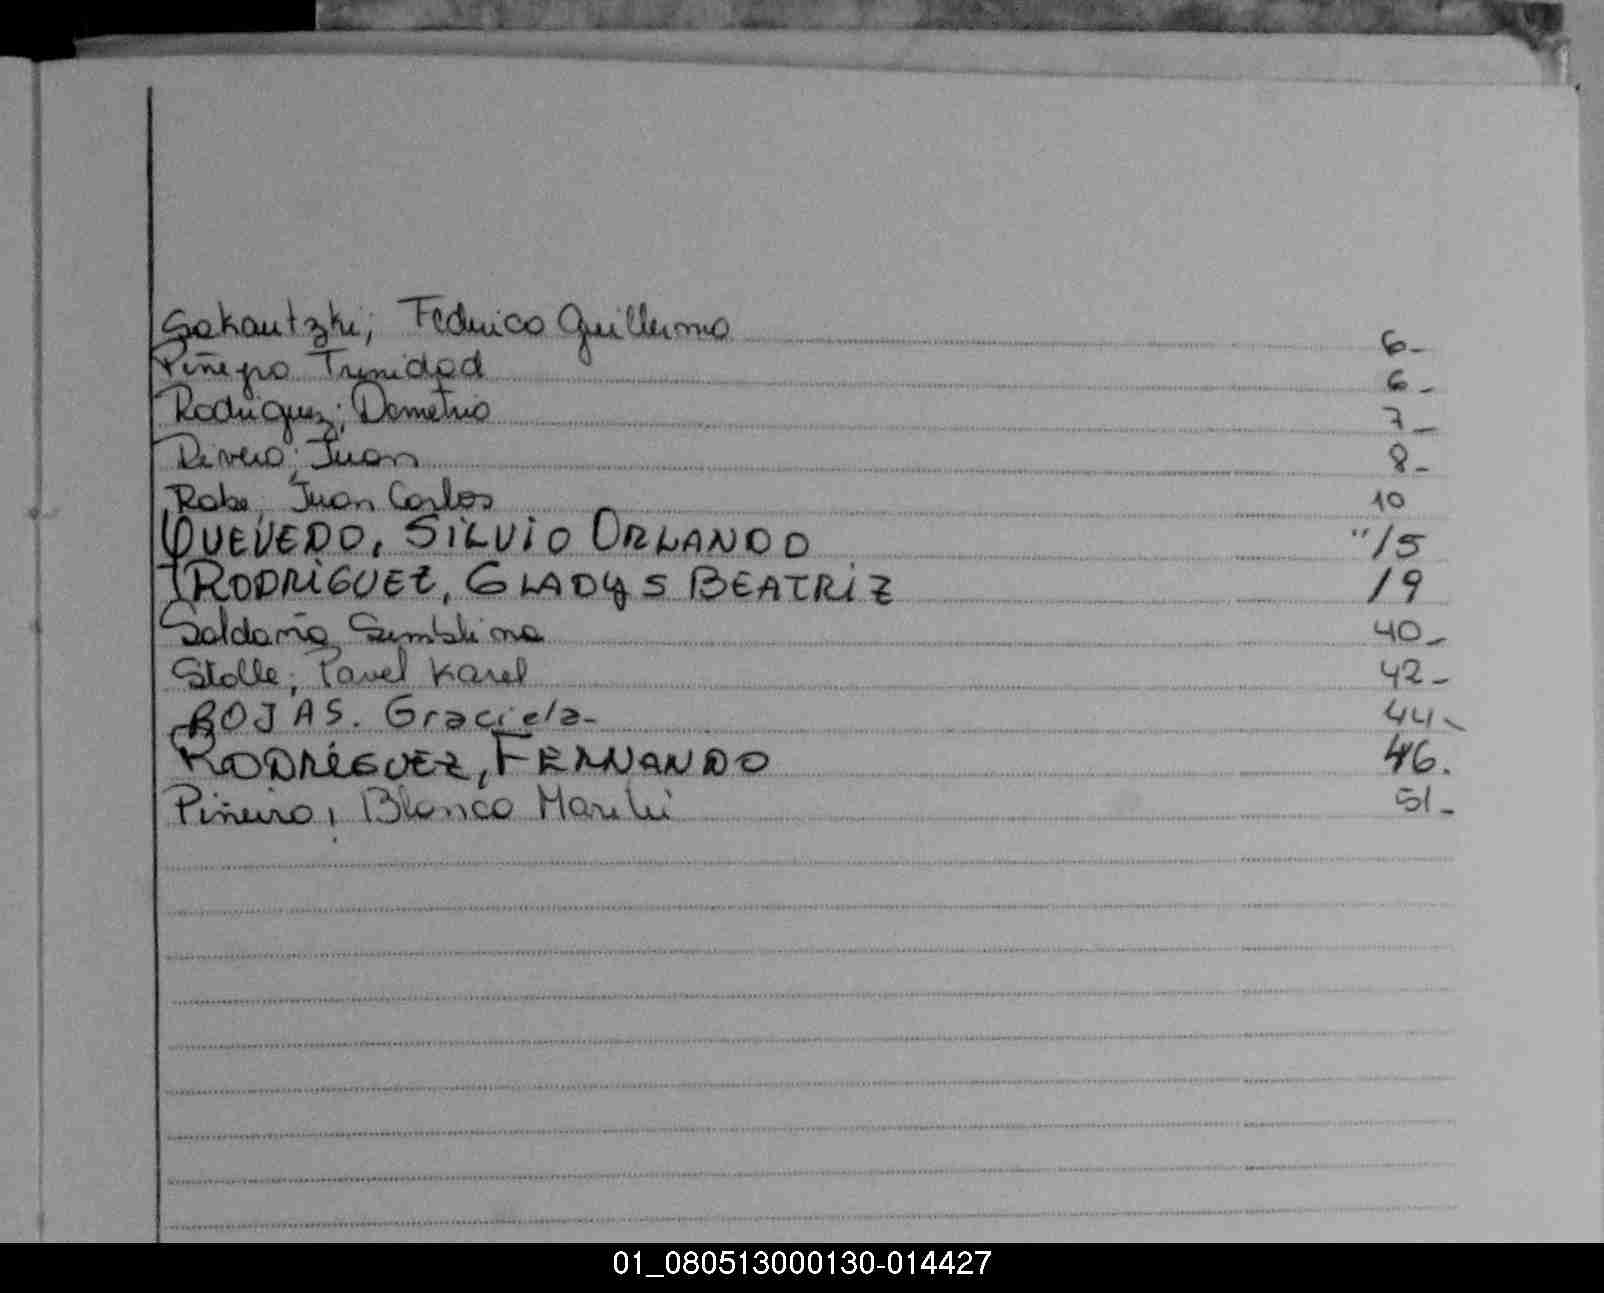 Sakautzki, Federico Guillermo 6-
Piñeyro Trinidad 6-
Rodriguez; Demetrio 7-
Rivero; Juan 8-
Rabe, Juan Carlos 10
QUEVEDO, SILVIO ORLANDO "15
RODRIGUEZ, GLADYS BEATRIZ 19
Saldaña 40-
Stolle, Pavel Karel 42-
ROJAS. Graciela- 44-
RODRÍGUEZ, FERNANDO 46.
Piñeiro, Blanca 51-
01_080513000130-014427